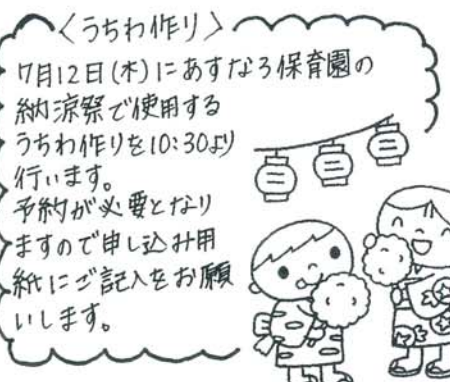 〈うちわ作り〉
7月12日(木)にあすなろ保育園の
納涼祭で使用する
うちわ作りを10:30より
行います。
予約が必要となり
ますので申し込み用
紙にご記入をお願
いします。